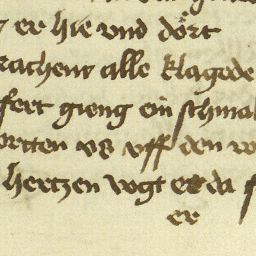 er hie vnd dört
rachent alle klagede
fert gieng ein schmal
ortten vs vff den w
hertzen vogt er da s
er